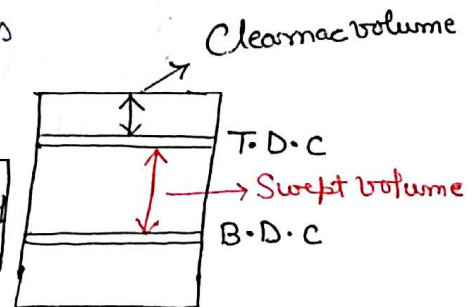 Clearnac volume
T.D.C
Swept volume
B.D.C